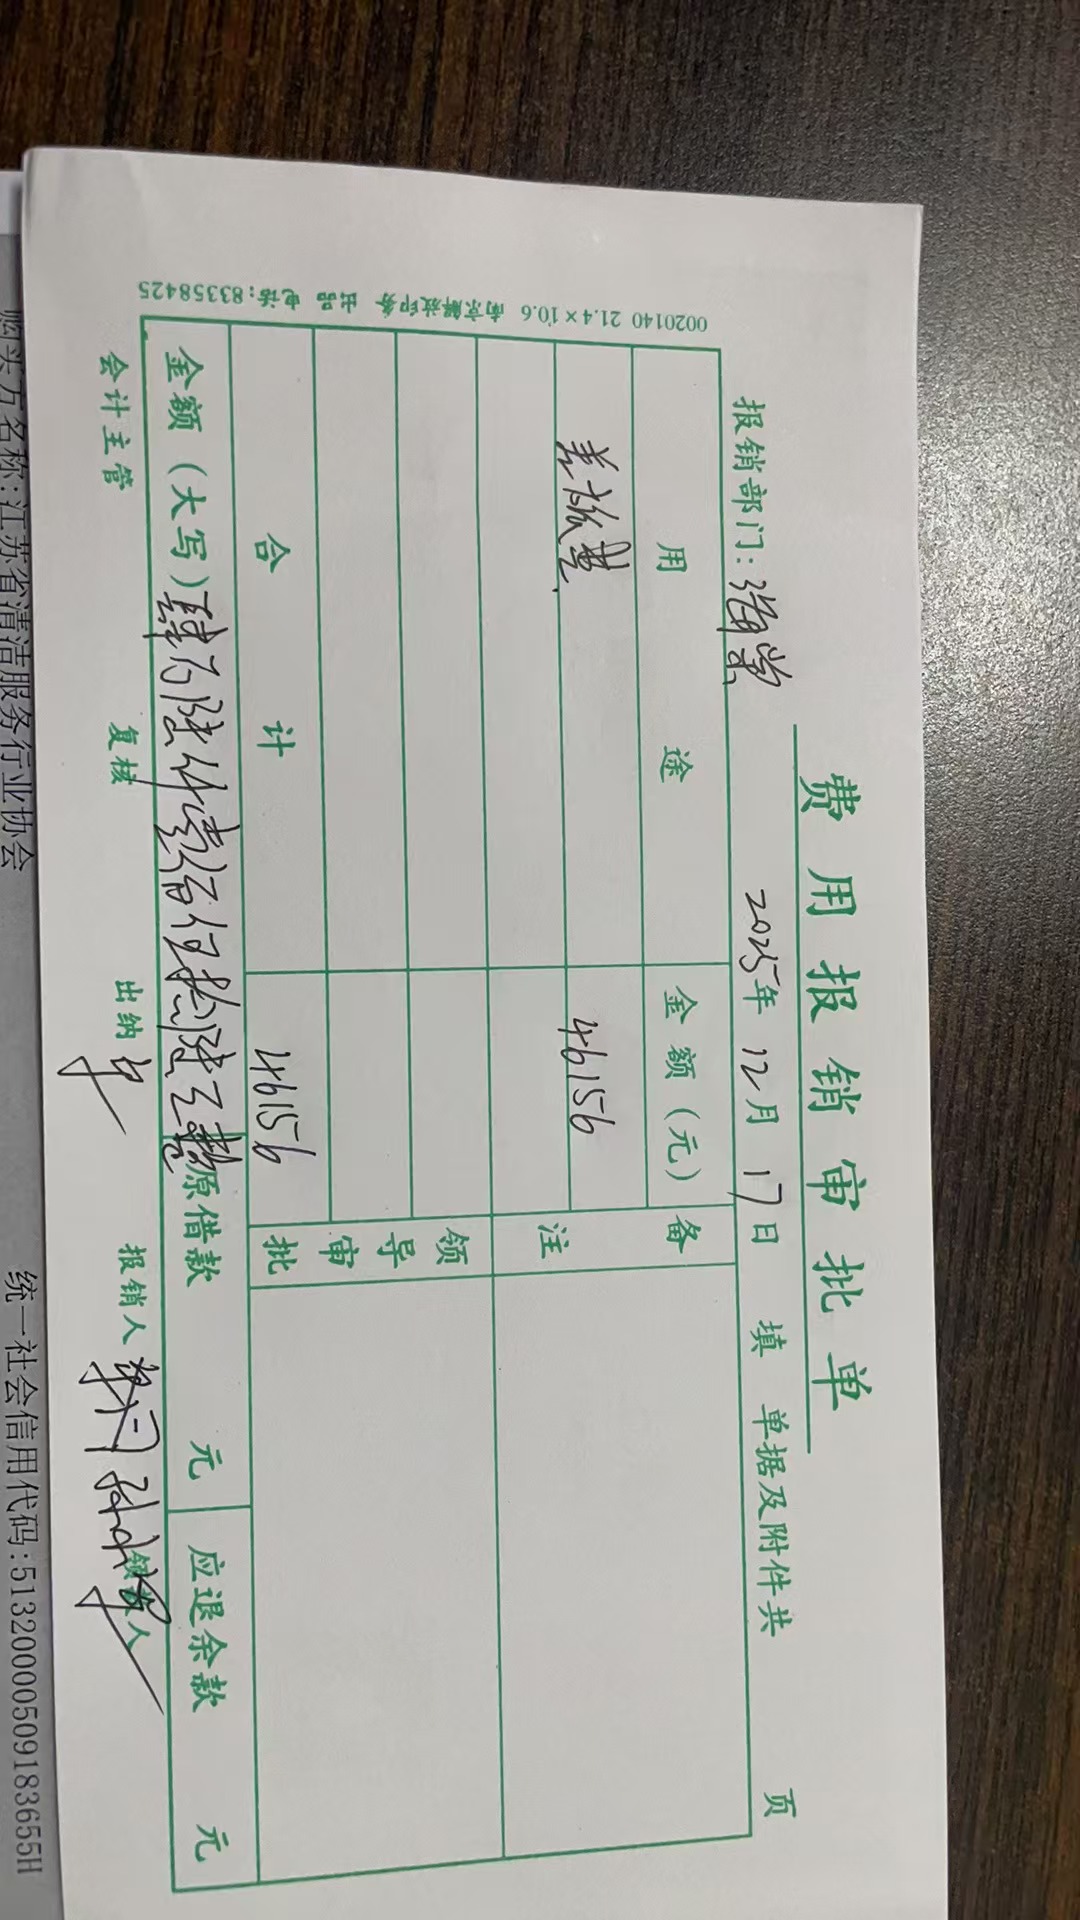 费用报销审批单
报销部门: 2025年 12月 17日 填 单据及附件共 页
用途 金额(元) 备注
差旅费 46156
领导审批
合计 46156
金额(大写)肆万陆仟壹佰伍拾陆元整 原借款 元 应退余款 元
会计主管 复核 出纳 报销人 领款人
0020140 21.4×10.6 南京解放印务 出品 电话:83358425
购买方名称:江苏省清洁服务行业协会 统一社会信用代码:51320000509183655H